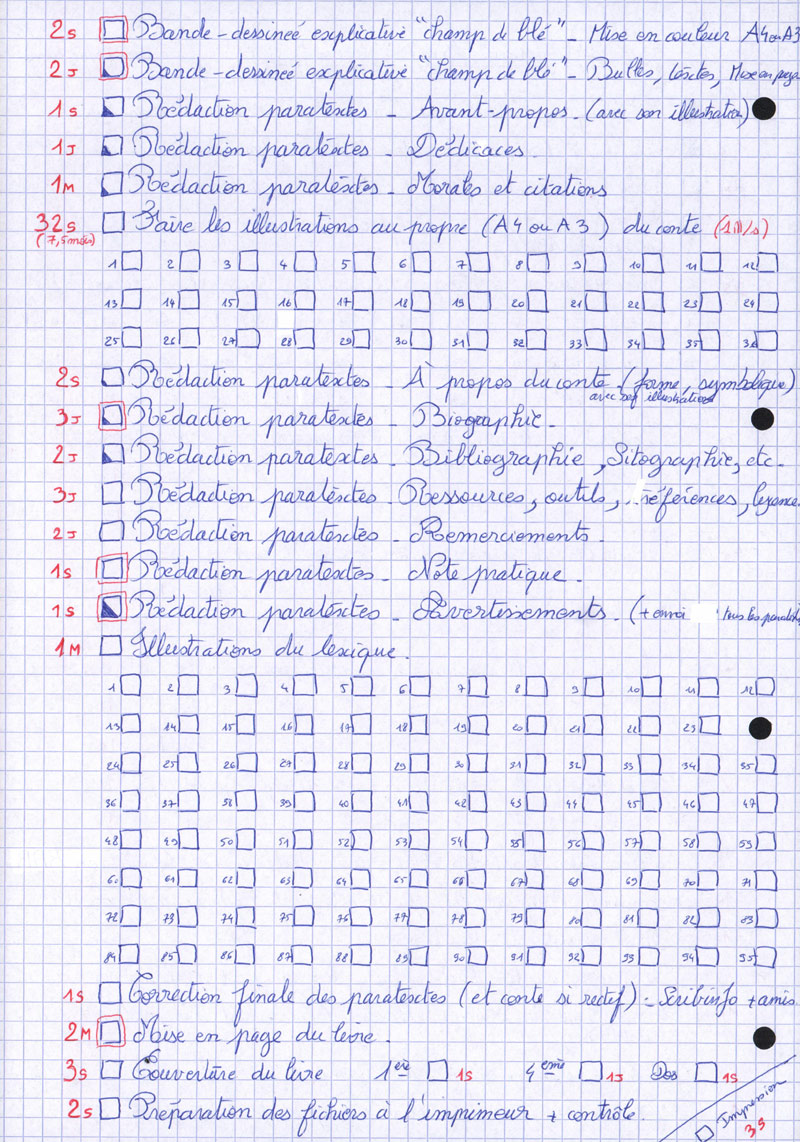 2s Bande-dessineé explicative "champ de blé" - Mise en couleur A4 ou A3
2J Bande-dessineé explicative "champ de blé" - Bulles, textes, Mise en page
1s Rédaction paratextes - Avant-propos. (avec son illustration)
1J Rédaction paratextes - Dédicaces.
1M Rédaction paratextes - Morales et citations
32s Faire les illustrations au propre (A4 ou A3) du conte
(7,5 mois)
1 2 3 4 5 6 7 8 9 10 11 12
13 14 15 16 17 18 19 20 21 22 23 24
25 26 27 28 29 30 31 32 33 34 35 36
2s Rédaction paratextes - À propos du conte. (forme, symbolique)
avec son illustration
3J Rédaction paratextes - Biographie.
2J Rédaction paratextes - Bibliographie, Sitographie, etc.
3J Rédaction paratextes - Ressources, outils, références,
2J Rédaction paratextes - Remerciements.
1s Rédaction paratextes - Note pratique.
1s Rédaction paratextes - Avertissements. (+ envoi tous les
1M Illustrations du lexique.
1 2 3 4 5 6 7 8 9 10 11 12
13 14 15 16 17 18 19 20 21 22 23
24 25 26 27 28 29 30 31 32 33 34 35
36 37 38 39 40 41 42 43 44 45 46 47
48 49 50 51 52 53 54 55 56 57 58 59
60 61 62 63 64 65 66 67 68 69 70 71
72 73 74 75 76 77 78 79 80 81 82 83
84 85 86 87 88 89 90 91 92 93 94 95
1s Correction finale des paratextes (et conte si rectif) - Scribinfo + amis
2M Mise en page du livre.
3s Couverture du livre 1ère 1s 4eme 1J Dos 1s
2s Préparation des fichiers à l'imprimeur + contrôle.
Impression
3s